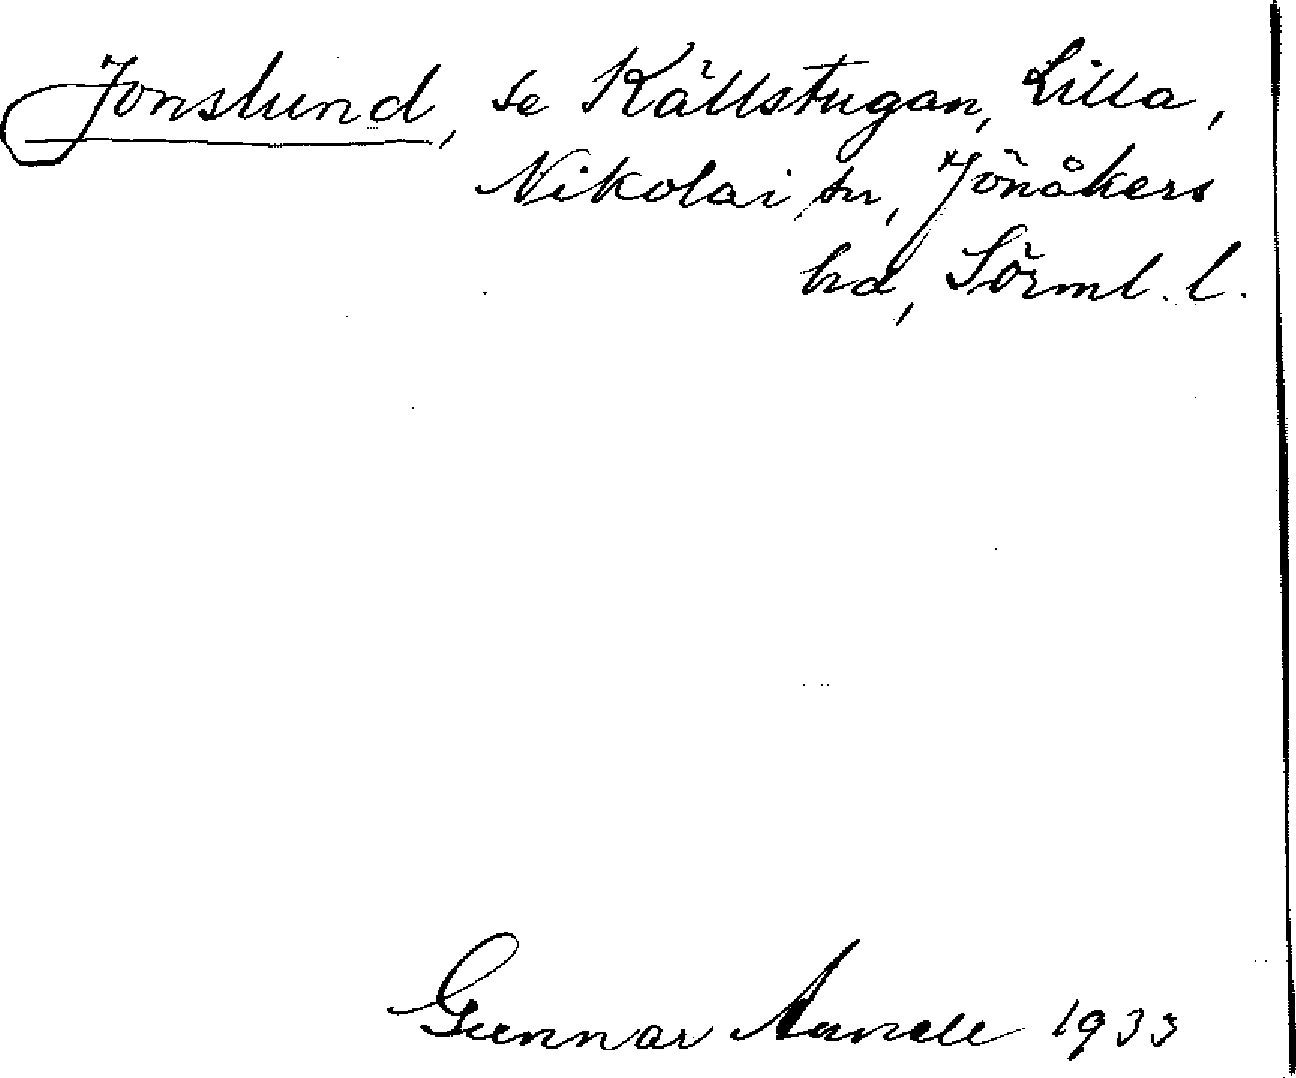 Jonslund, se Källstugan, Lilla,
Nikolai sn, Jönåkers
hd, Sörml. l.
Gunnar 1933